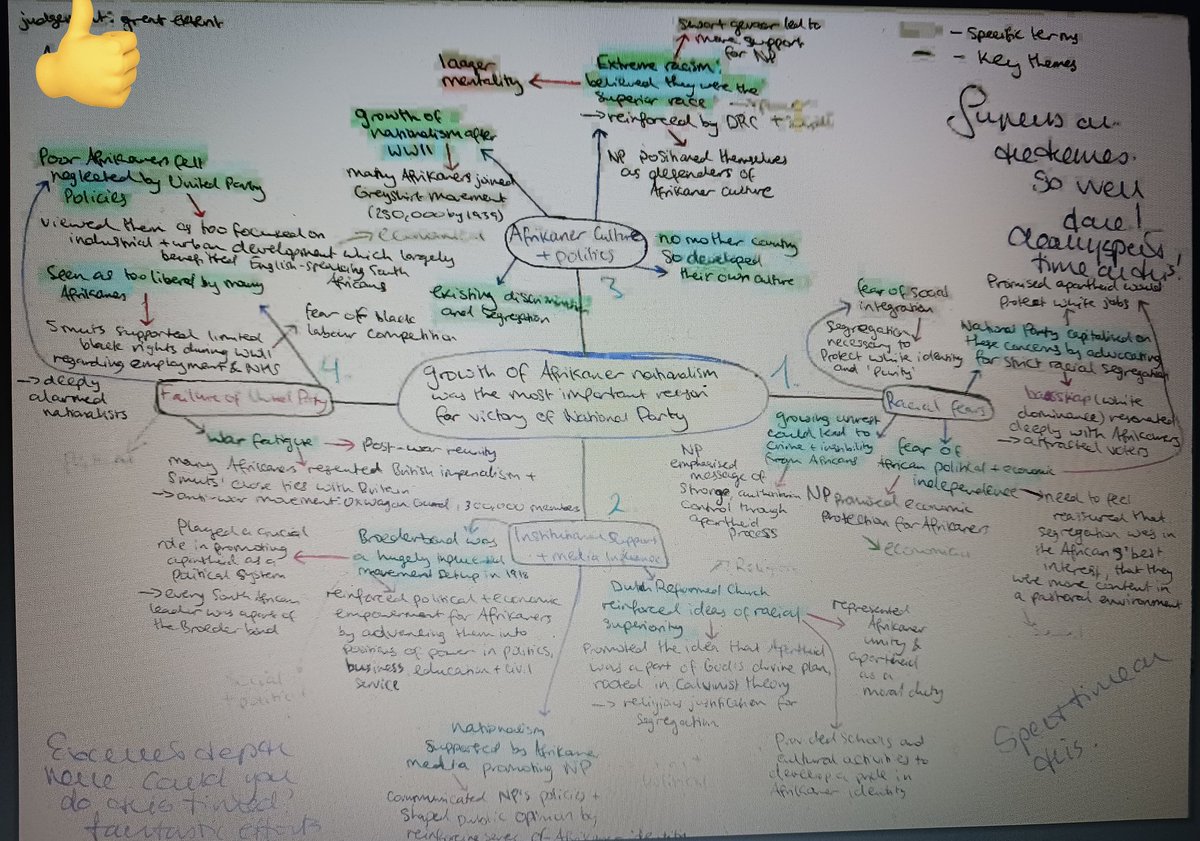 judgement: great extent
- Specific terms
- Key themes
Superb on
So well
done!
Spent time on
this.
growth of Afrikaner nationalism
was the most important reason
for victory of National Party
1.
Racial fears
fear of social
integration
Segregation
necessary to
Protect white identity
and 'purity'
Promised apartheid would
Protect white jobs
National Party capitalised on
these concerns by advocating
for strict racial segregation
baasskap (white
dominance) resonated
deeply with Afrikaners
→ attracted voters
growing unrest
could lead to
crime +
from Africans
NP
emphasised
message of
Strong,
control through
apartheid
process
fear of
African political + economic
independence
NP promised economic
protection for Afrikaners
economical
need to feel
that
segregation was in
the Africans' best
interest, that they
were more content in
a pastoral environment
2
Institutional Support
+ media influence
Broederbond was
a hugely influential
movement setup in 1918
Played a crucial
role in promoting
apartheid as a
Political System
→ every South African
leader was a part of
the Broederbond
reinforced political + economic
empowerment for Afrikaners
by advancing them into
positions of power in politics,
business, education + civil
service
Social
+ political
Religious
Dutch Reformed Church
reinforced ideas of racial
superiority
Promoted the idea that Apartheid
was a part of God's divine plan,
rooted in Calvinist theory
→ religious justification for
segregation
represented
Afrikaner
unity &
apartheid
as a
moral duty
Provided schools and
cultural activities to
develop a pride in
Afrikaner identity
nationalism
supported by Afrikaner
media promoting NP
communicated NP's policies +
shaped public opinion by
reinforcing sense of Afrikaner identity
political
3
Afrikaner Culture
+ politics
growth of
nationalism after
WWII
many Afrikaners joined
Greyshirt movement
(250,000 by 1939)
Extreme racism:
believed they were the
superior race
→ reinforced by DRC +
laager
mentality
swart gevaar led to
more support
for NP
NP positioned themselves
as defenders of
Afrikaner culture
no mother country
so developed
their own culture
existing discrimination
and segregation
4.
Failure of United Party
Poor Afrikaners felt
neglected by United Party
Policies
viewed them as too focused on
industrial + urban development which largely
benefitted English-speaking South
Africans
economical
Seen as too liberal by many
Afrikaners
Smuts supported limited
black rights during WWII
regarding employment & NHS
→ deeply
alarmed
nationalists
fear of black
labour competition
war fatigue
Post-war
many Afrikaners resented British imperialism +
Smuts' close ties with Britain
→ anti-war movement: Oxwagon Guard, 300,000 members
Excellent depth
here could you
do this timed?
fantastic effort